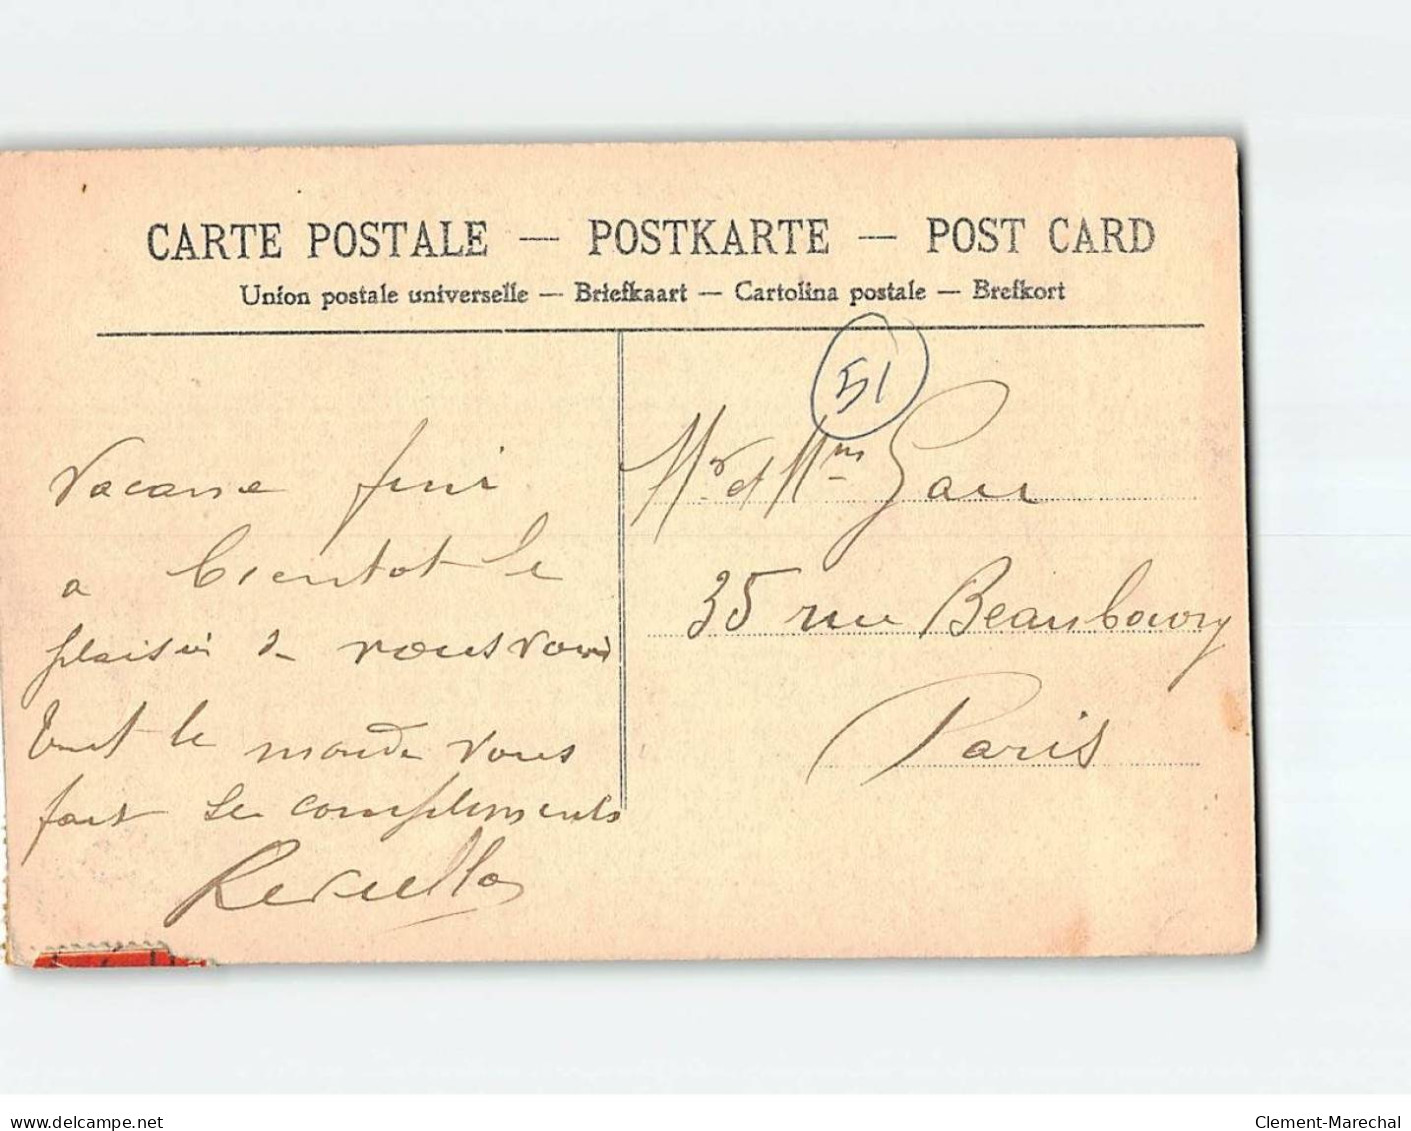 CARTE POSTALE — POSTKARTE — POST CARD
Union postale universelle — Briefkaart — Cartolina postale — Brefkort
51
Vacanse fini
a bientot le
plaisir de vous voir
tout le monde vous
fait se compliments
Mr et Mme
35 rue Beaubourg
Paris
www.delcampe.net
Clement-Marechal